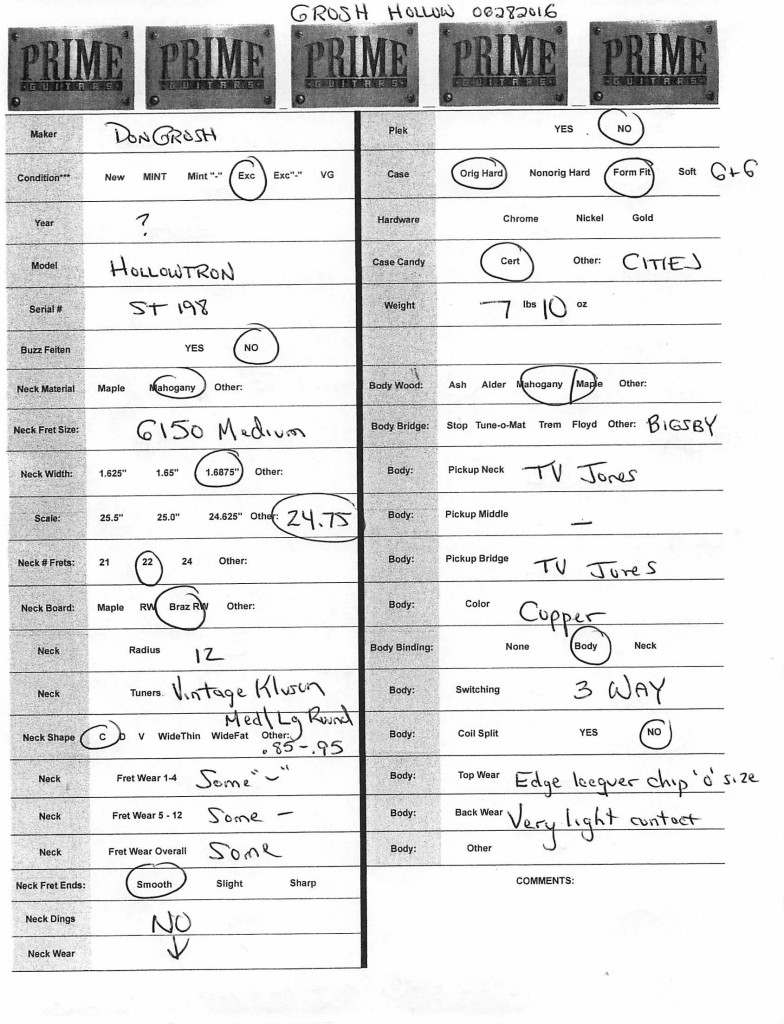 GROSH HOLLOW 06282016
PRIME GUITARS PRIME GUITARS PRIME GUITARS PRIME GUITARS PRIME GUITARS
Maker DON GROSH
Condition*** New MINT Mint "-" Exc Exc"-" VG
Year ?
Model HOLLOWTRON
Serial # ST 198
Buzz Feiten YES NO
Neck Material Maple Mahogany Other:
Neck Fret Size: 6150 Medium
Neck Width: 1.625" 1.65" 1.6875" Other:
Scale: 25.5" 25.0" 24.625" Other: 24.75
Neck # Frets: 21 22 24 Other:
Neck Board: Maple RW Braz RW Other:
Neck Radius 12
Neck Tuners Vintage Kluson
Med/Lg Round
Neck Shape C D V WideThin WideFat Other:
.85-.95
Neck Fret Wear 1-4 Some "-"
Neck Fret Wear 5 - 12 Some -
Neck Fret Wear Overall Some
Neck Fret Ends: Smooth Slight Sharp
Neck Dings NO
Neck Wear ↓
Plek YES NO
Case Orig Hard Nonorig Hard Form Fit Soft G+G
Hardware Chrome Nickel Gold
Case Candy Cert Other: CITIES
Weight 7 lbs 10 oz
Body Wood: Ash Alder Mahogany Maple Other:
Body Bridge: Stop Tune-o-Mat Trem Floyd Other: BIGSBY
Body: Pickup Neck TV Jones
Body: Pickup Middle —
Body: Pickup Bridge TV Jones
Body: Color Copper
Body Binding: None Body Neck
Body: Switching 3 WAY
Body: Coil Split YES NO
Body: Top Wear Edge lacquer chip 'o' size
Body: Back Wear Very light contact
Body: Other
COMMENTS: